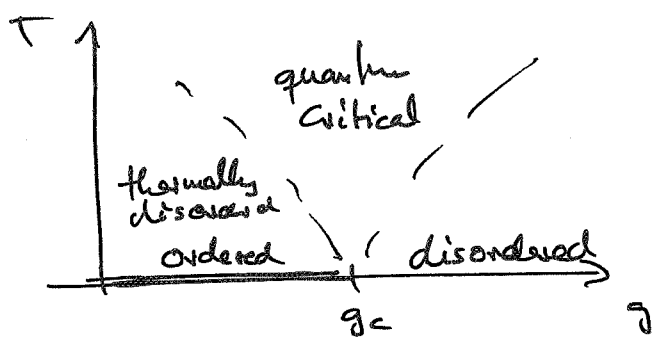 T
quantum
critical
thermally
disordered
ordered
disordered
gc
g